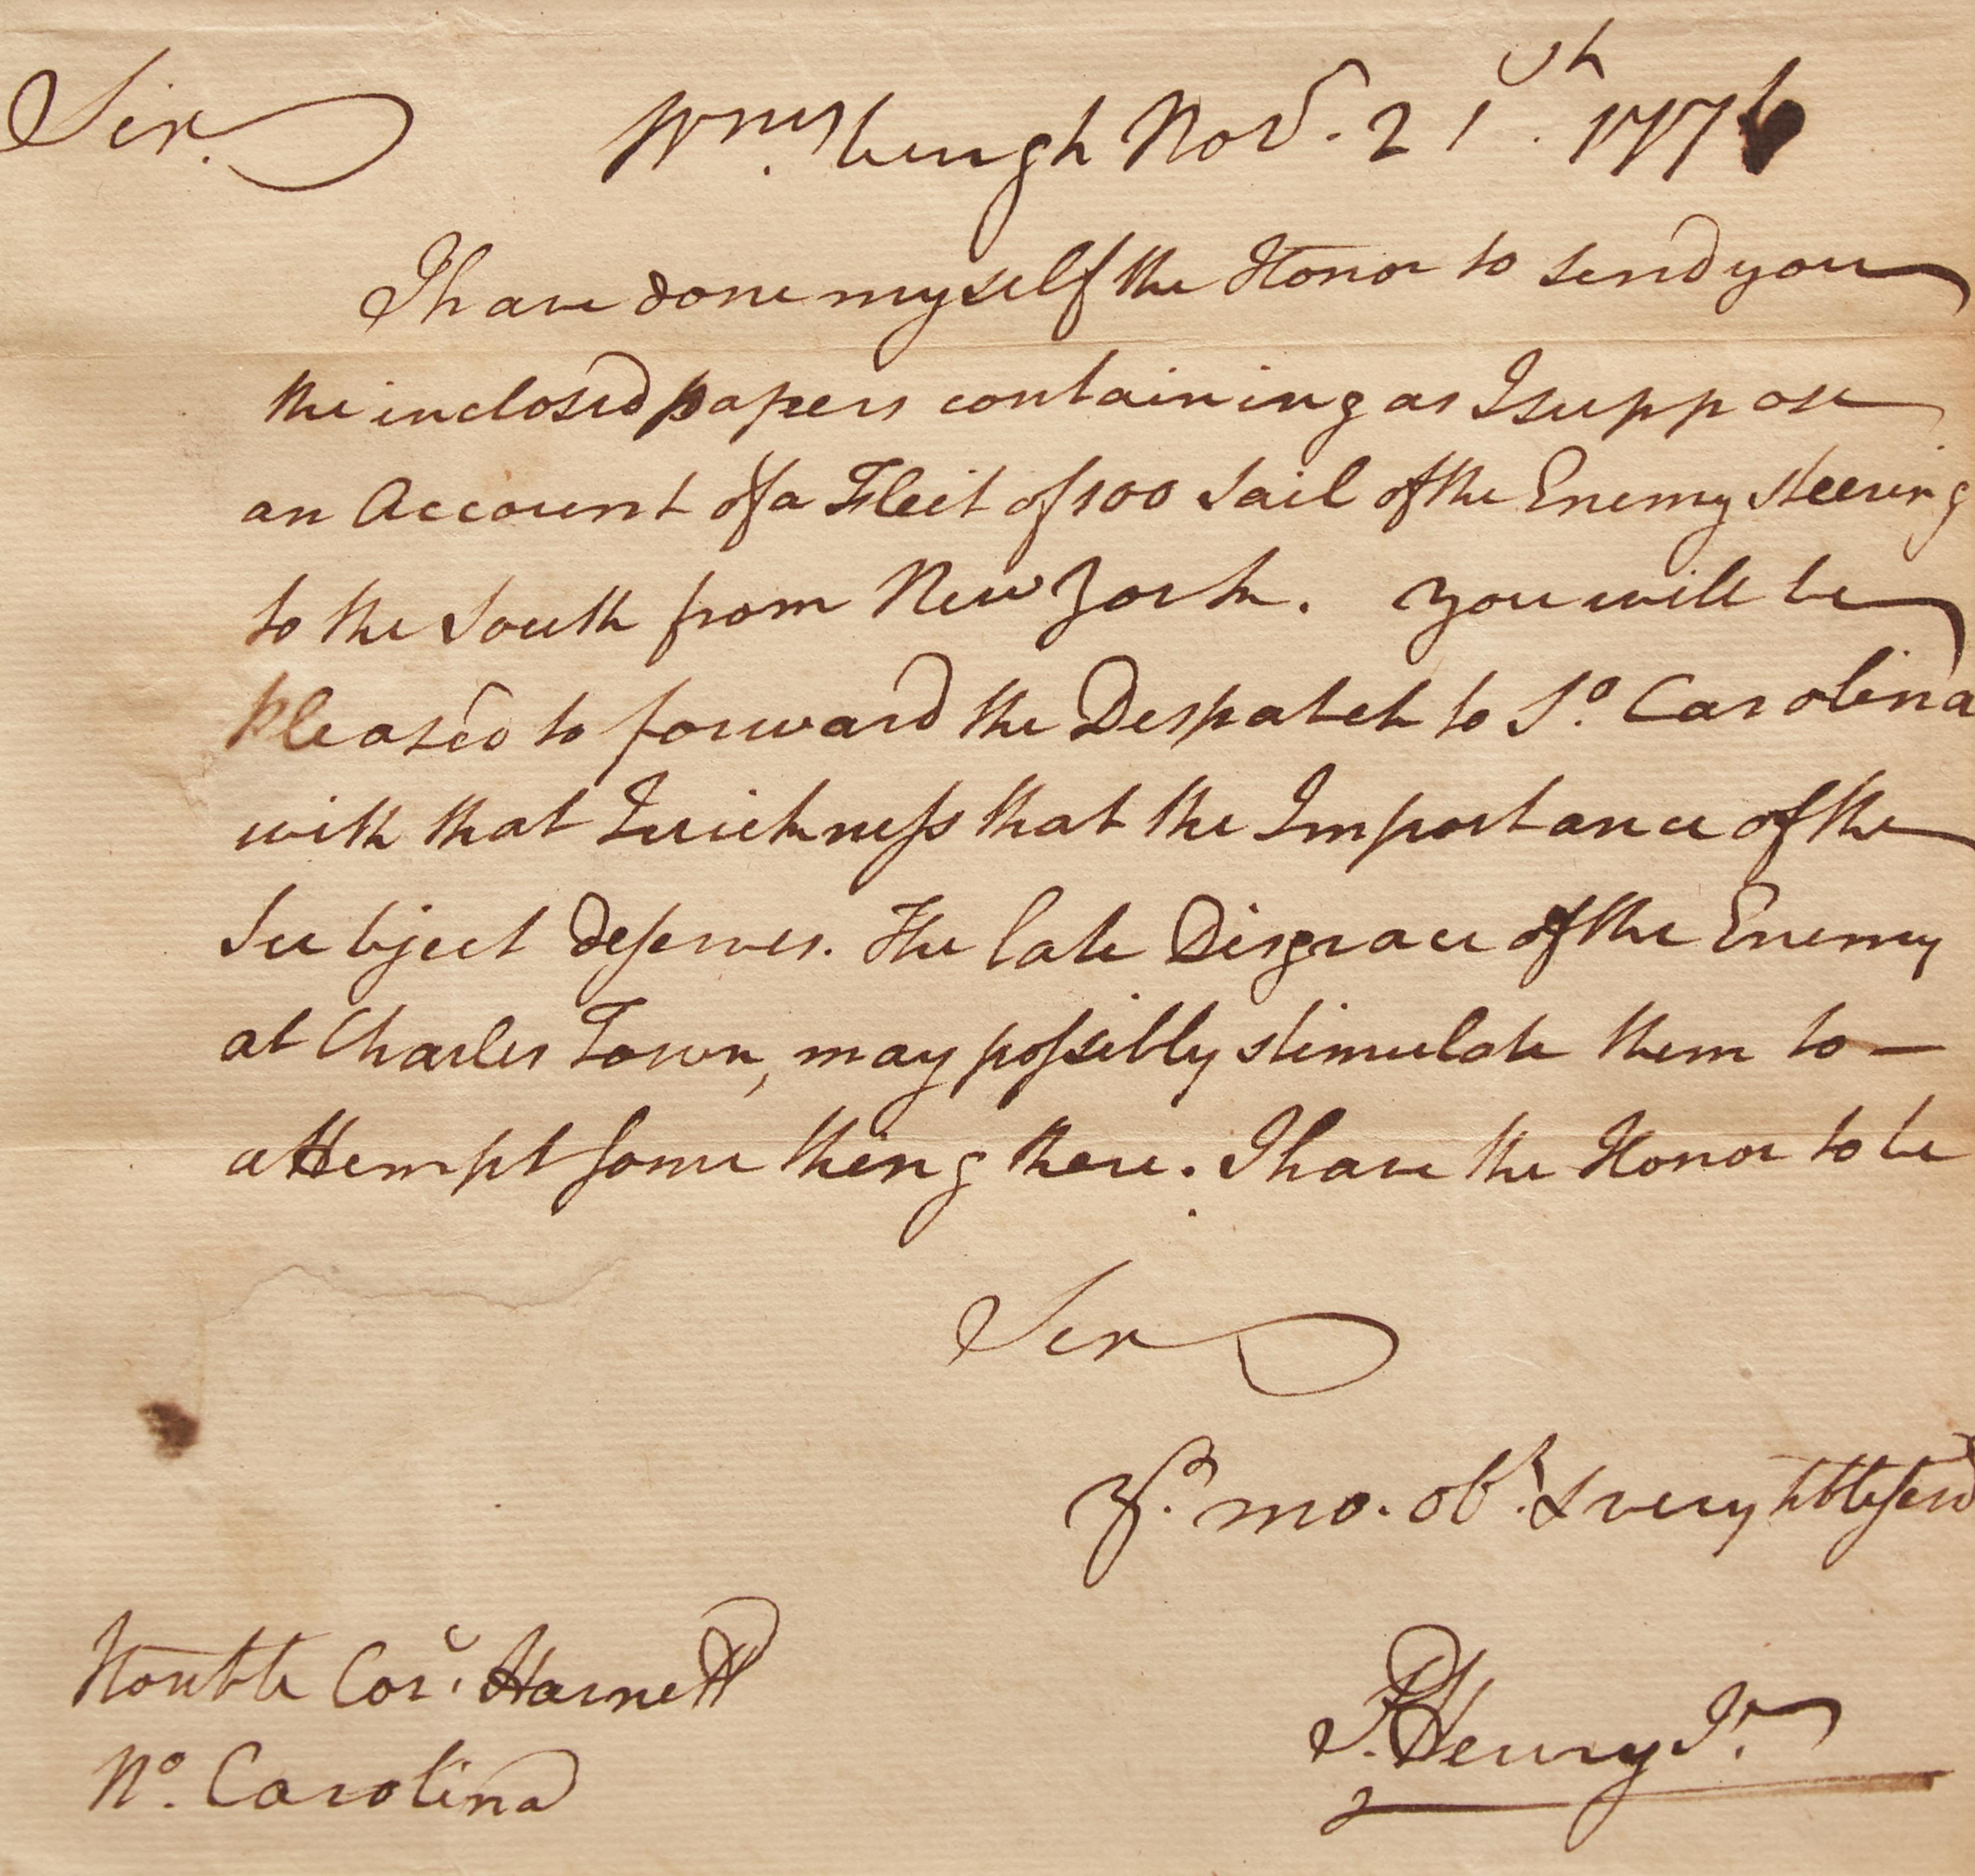 Sir. Wmsburgh Nov. 21th. 1776
I have done myself the Honor to send you
the inclosed papers containing as I suppose
an Account of a Fleet of 100 Sail of the Enemy steering
to the South from New York. You will be
pleased to forward the Despatch to So. Carolina
with that Quickness that the Importance of the
Subject deserves. The late Disgrace of the Enemy
at Charles Town, may possibly stimulate them to —
attempt some thing there. I have the Honor to be
Sir
Yr. mo. obt. & very hble serv
P. Henry Jr.
Honble Cors. Harnett
No. Carolina